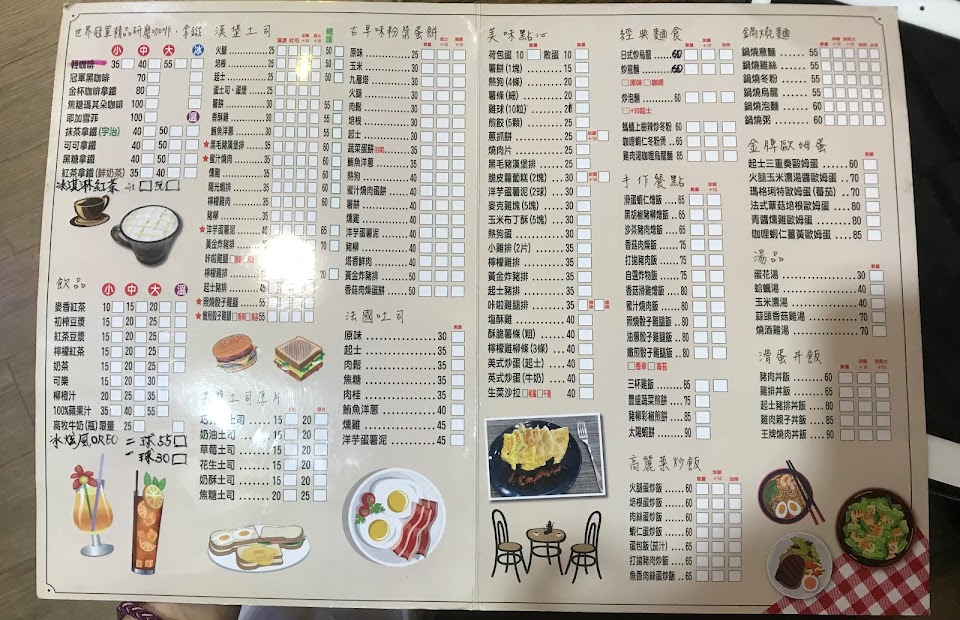 世界冠軍精品研磨咖啡、拿鐵
小 中 大 冰
輕咖啡 35 40 55
冠軍黑咖啡 70
金杯咖啡拿鐵 80
焦糖瑪其朵咖啡 100
耶加雪菲 100 溫
抹茶拿鐵(宇治) 40 50
可可拿鐵 40 50
黑糖拿鐵 40 50
紅茶拿鐵(鮮奶茶) 35 45
冰淇淋紅茶
飲品
小 中 大 溫
麥香紅茶 10 15 20
初榨豆漿 15 20 25
紅茶豆漿 15 20 25
檸檬紅茶 15 20 25
奶茶 15 20 25
可樂 15 20 30
柳橙汁 20 25 35
100%蘋果汁 35 40 55
高牧牛奶(瓶)限量 25
冰炫風OREO 二球55
一球30
漢堡土司
漢堡 吐司
火腿 25
培根 25
起士 25
蛋土司、蛋堡 25
薯餅 30
香酥雞 30
鮪魚洋蔥 30
★黑毛豬漢堡排 35
★蜜汁燒肉 35
燻雞 35
陽光蝦排 35
檸檬雞肉 35
豬柳 35
★洋芋蛋薯泥 40
黃金炸豬排 40
咔啦雞腿
檸檬雞排
起士豬排 45
★照燒骰子雞腿 55
★嫩煎骰子雞腿
古早味粉漿蛋餅
數量 起士+10
原味 25
玉米 30
九層塔 30
火腿 30
肉鬆 30
培根 30
起士 30
蔬菜蛋餅 35
鮪魚洋蔥 35
熱狗 40
蜜汁燒肉蛋餅 40
薯餅 40
燻雞 40
洋芋蛋薯泥 40
豬柳 40
塔香鮮肉 40
黃金炸豬排 50
香菇肉燥蛋餅 50
法國吐司
數量
原味 30
起士 35
肉鬆 35
焦糖 35
肉桂 35
鮪魚洋蔥 40
燻雞 45
洋芋蛋薯泥 45
土司厚片
巧克力土司 15 20
奶油土司 15 20
草莓土司 15 20
花生土司 15 20
奶酥土司 15 20
焦糖土司 20 25
美味點心
數量
荷包蛋 10 散蛋 10
薯餅(1塊) 15
熱狗(4條) 20
薯條(細) 20
雞球(10粒) 20
煎餃(5顆) 25
蔥抓餅 25
燒肉片 25
黑毛豬漢堡排 25
脆皮蘿蔔糕(2塊) 30
洋芋蛋薯泥(2球) 30
麥克雞塊(5塊) 30
玉米布丁酥(5塊) 30
熱狗蛋 30
小雞排(2片) 35
檸檬雞排 35
黃金炸豬排 35
起士豬排 35
咔啦雞腿排 35
塩酥雞 40
酥脆薯條(粗) 40
檸檬雞柳條(3條) 40
美式炒蛋(起士) 40
英式炒蛋(牛奶) 40
生菜沙拉 40
經典麵食
數量 加蛋+10 加麵
日式炒烏龍 60
炒意麵 60
原味 咖哩
炒泡麵 60
+10起士
螞蟻上樹辣炒冬粉 60
咖哩蝦仁冬粉煲 65
雞肉湯咖哩烏龍麵 85
手作餐點
數量 加蛋+10
滑蛋蝦仁燴飯 65
黑胡椒豬柳燴飯 65
沙茶豬肉燴飯 65
香菇肉燥飯 75
打拋豬肉飯 65
自選炸物飯 65
香菇滑雞燴飯 80
蜜汁燒肉飯 80
照燒骰子雞腿飯 80
油蔥骰子雞腿飯 80
嫩煎骰子雞腿飯 80
三杯雞飯 85
豐盛蔬菜煎餅
豬柳彩椒煎餅
太陽蝦餅 90
高麗菜炒飯
數量 加蛋+10 加飯
火腿蛋炒飯 60
培根蛋炒飯 60
肉絲蛋炒飯 60
蝦仁蛋炒飯 60
蛋包飯(茄汁) 65
打拋豬肉炒飯 65
魚香肉絲蛋炒飯 65
鍋燒麵
鍋燒意麵 50
鍋燒雞絲 50
鍋燒冬粉 50
鍋燒烏龍 50
鍋燒泡麵 60
鍋燒粥 60
金牌歐姆蛋
數量
起士三重奏歐姆蛋 60
火腿玉米濃湯醬歐姆蛋 70
瑪格琍特歐姆蛋(蕃茄) 70
法式蕈菇培根歐姆蛋 80
青醬燻雞歐姆蛋 80
咖哩蝦仁薑黃歐姆蛋 85
湯品
數量
蛋花湯 30
蛤蠣湯 40
玉米濃湯 40
蒜頭香菇雞湯 70
燒酒雞湯 70
滑蛋丼飯
數量 加蛋+10 加飯
豬肉丼飯 60
雞排丼飯 80
起士豬排丼飯 80
雞肉親子丼飯 80
王牌燒肉丼飯 90